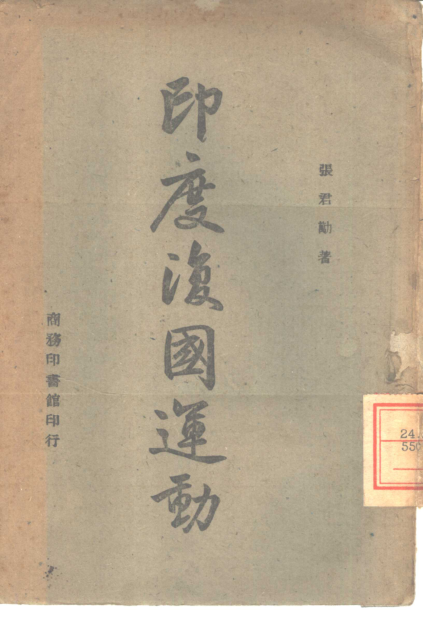 張君勱著
印度復國運動
商務印書館印行
24
550